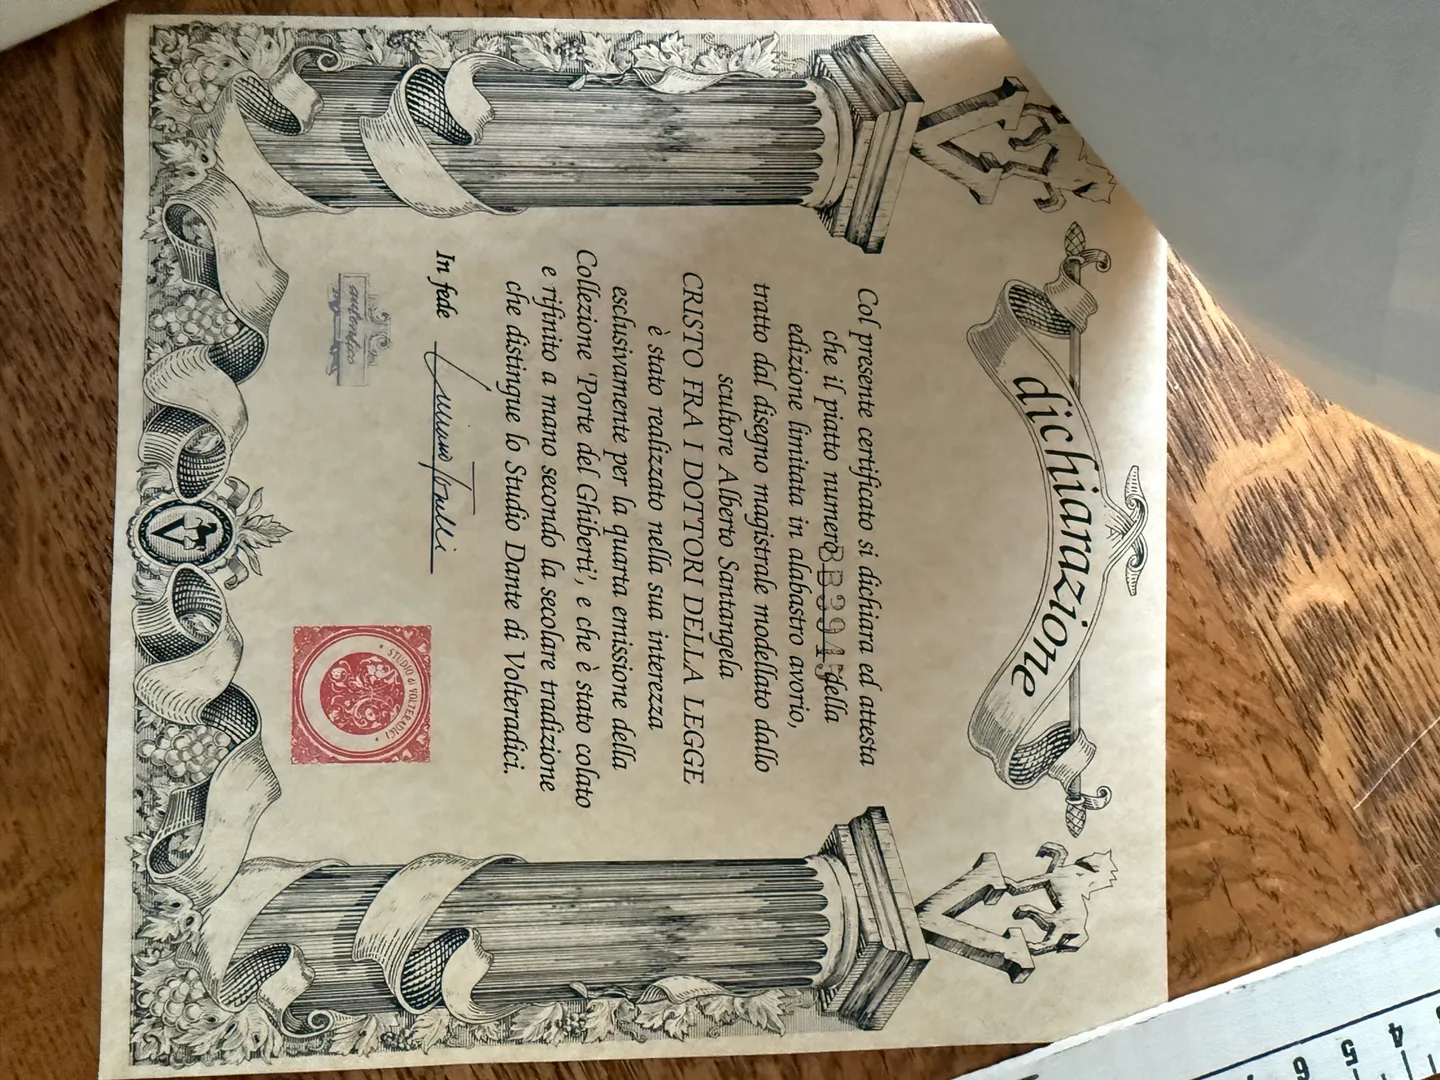 dichiarazione
Col presente certificato si dichiara ed attesta
che il piatto numero della
edizione limitata in alabastro avorio,
tratto dal disegno magistrale modellato dallo
scultore Alberto Santangela
CRISTO FRA I DOTTORI DELLA LEGGE
è stato realizzato nella sua interezza
esclusivamente per la quarta emissione della
Collezione 'Porte del Ghiberti', e che è stato colato
e rifinito a mano secondo la secolare tradizione
che distingue lo Studio Dante di Volteradici.
In fede
autentico
STUDIO di VOLTERADICI
4
5
6